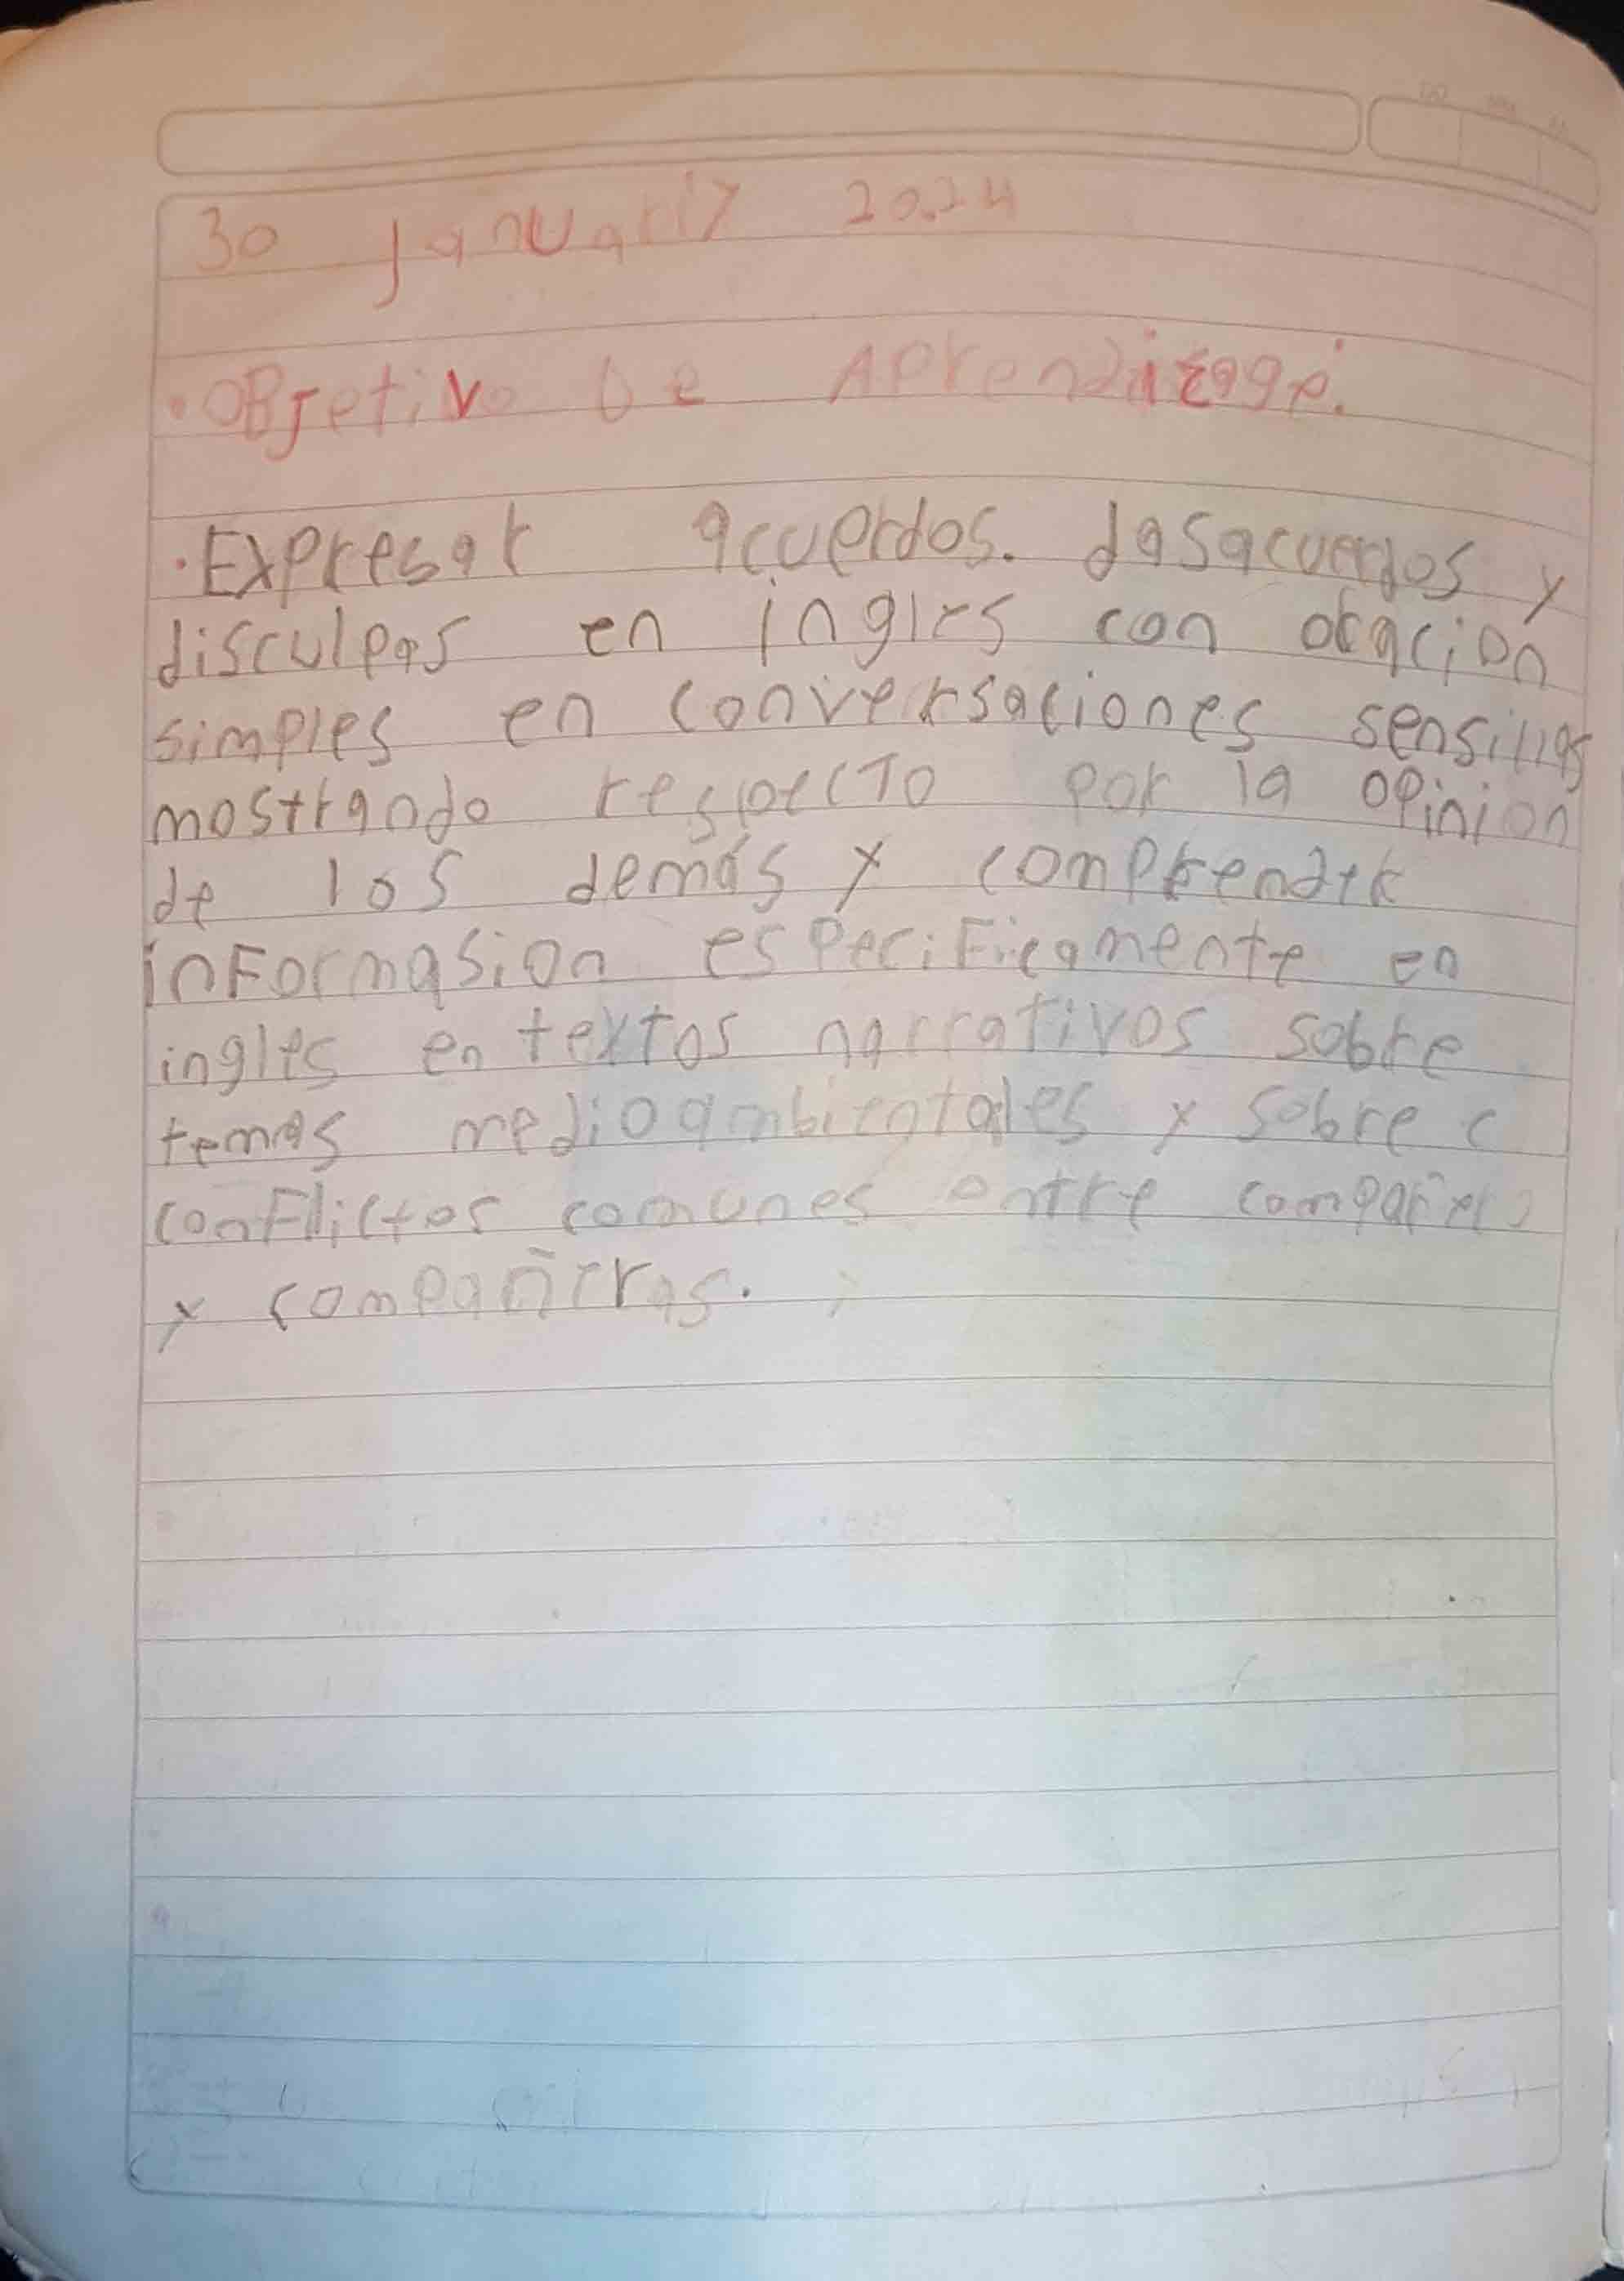 30 January 2024
• OBJetivo De Aprendizage.
• Expresar acuerdos. dasacuerdos y
disculpas en ingles con oracion
simples en conversaciones sensillas
mostrando respecto por la opinion
de los demás y comprender
informasion especificamente en
ingles en textos narrativos sobre
temas medioambientales y sobre c
conflictos comunes entre compañero
y compañeras.